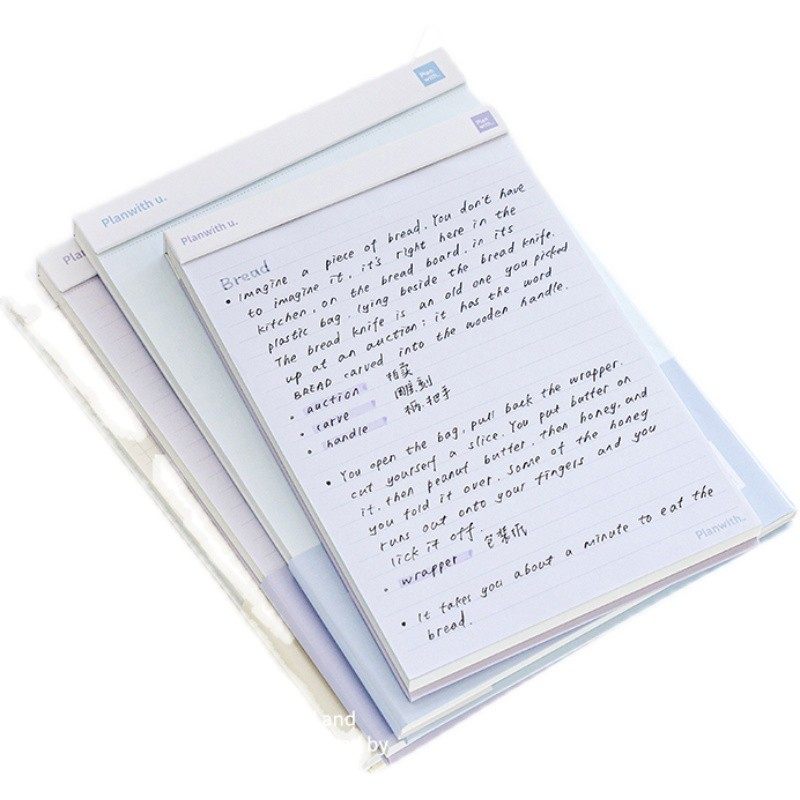 Plan
with.
Planwith u.
Plan
with.
Planwith u.
Plan
Bread
• Imagine a piece of bread. You don't have
to imagine it, it's right here in the
kitchen, on the bread board, in its
plastic bag, lying beside the bread knife.
The bread knife is an old one you picked
up at an auction; it has the word
BREAD carved into the wooden handle.
• auction 拍卖
• carve 雕刻
• handle 柄.把手
• You open the bag, pull back the wrapper.
cut yourself a slice. You put butter on
it, then peanut butter, then honey, and
you fold it over. Some of the honey
runs out onto your fingers and you
lick it off.
• wrapper 包装纸
• It takes you about a minute to eat the
bread.
Planwith.
and
by